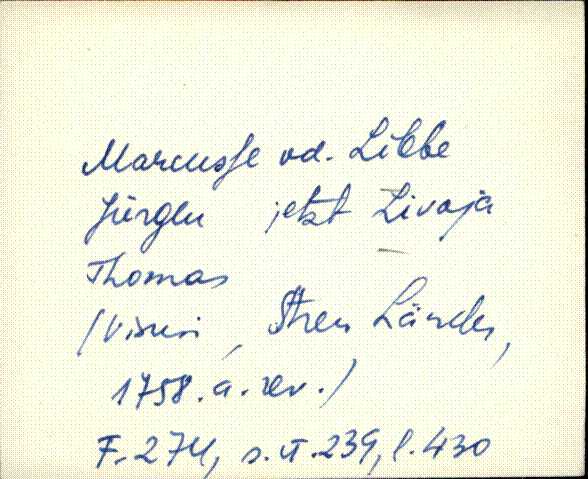 Marcusse vd. Libbe
Jürglu jetzt Livaja
Thomas
(Visusi, Stren Länder,
1758. a. rev.)
F. 274, s. ũ. 239, l. 430